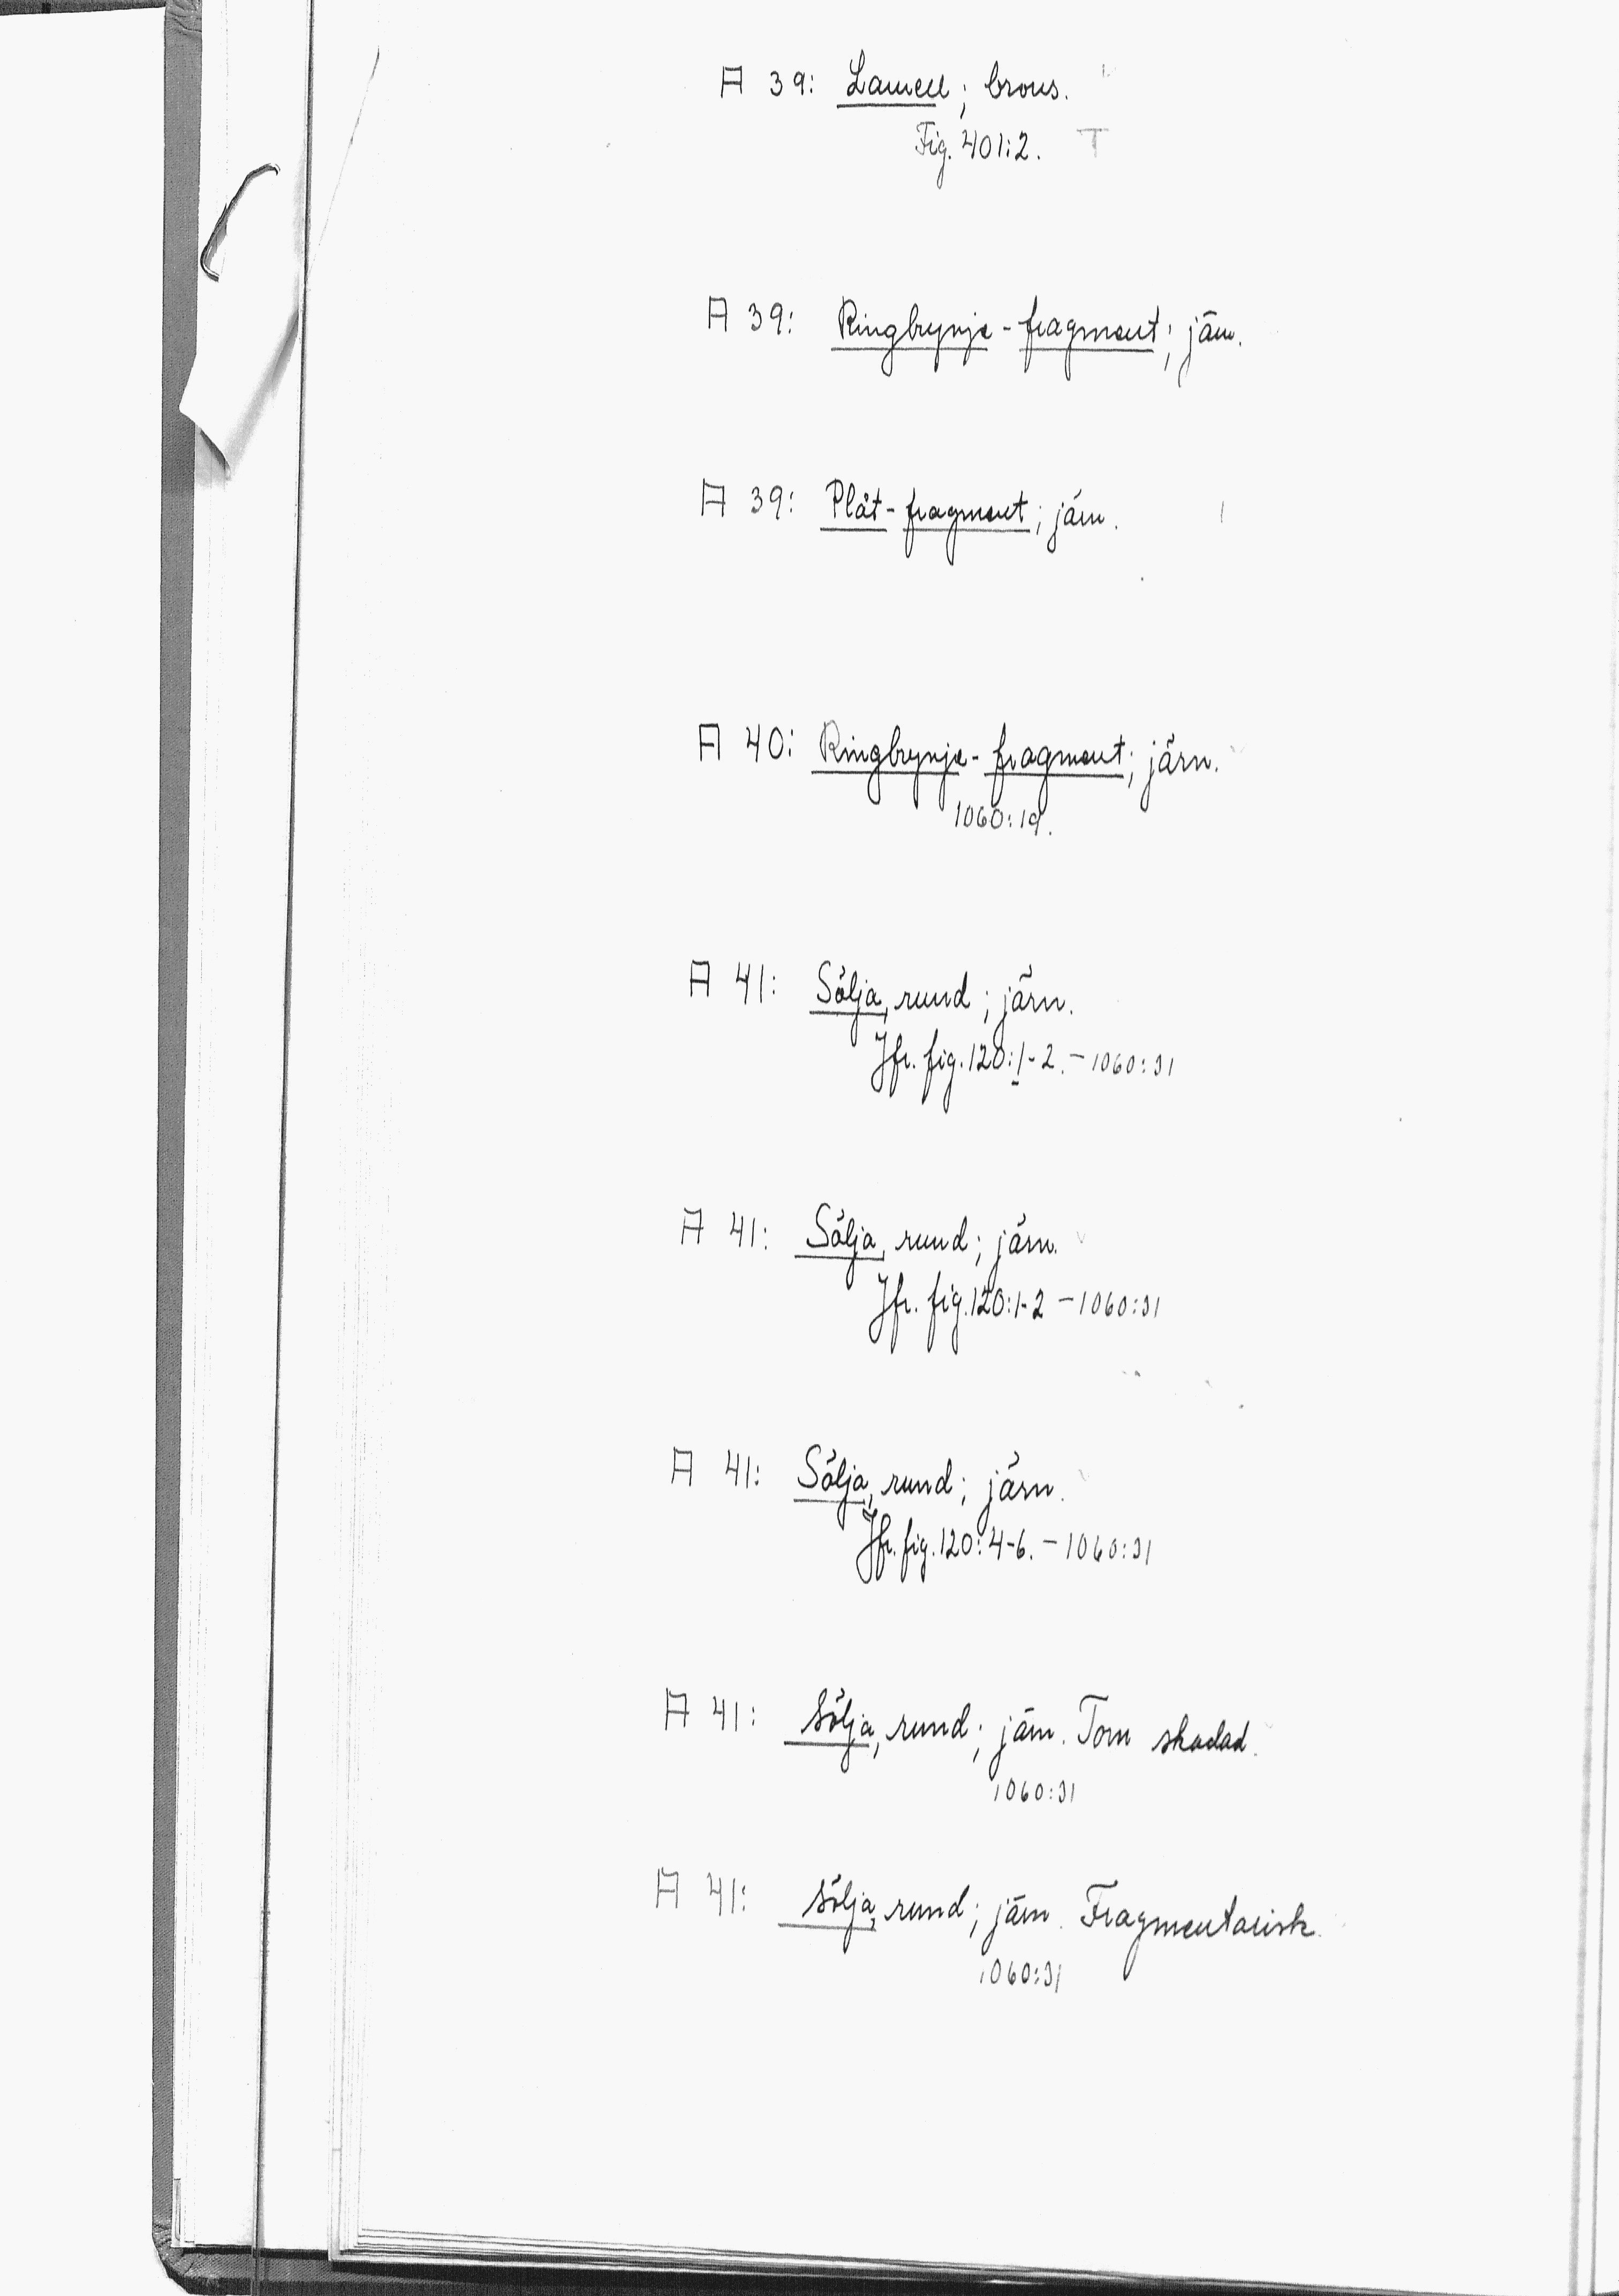 A 39: Lamell; brons.
Fig. 401:2. T
A 39: Ringbrynje-fragment; järn.
A 39: Plåt-fragment; järn.
A 40: Ringbrynje-fragment; järn.
1060:19.
A 41: Sölja, rund; järn.
Jfr. fig. 120:1-2. – 1060:31
A 41: Sölja, rund; järn.
Jfr. fig. 120:1-2 – 1060:31
A 41: Sölja, rund; järn.
Jfr. fig. 120:4-6. – 1060:31
A 41: Sölja, rund; järn. Torn skadad.
1060:31
A 41: Sölja, rund; järn. Fragmentarisk.
1060:31